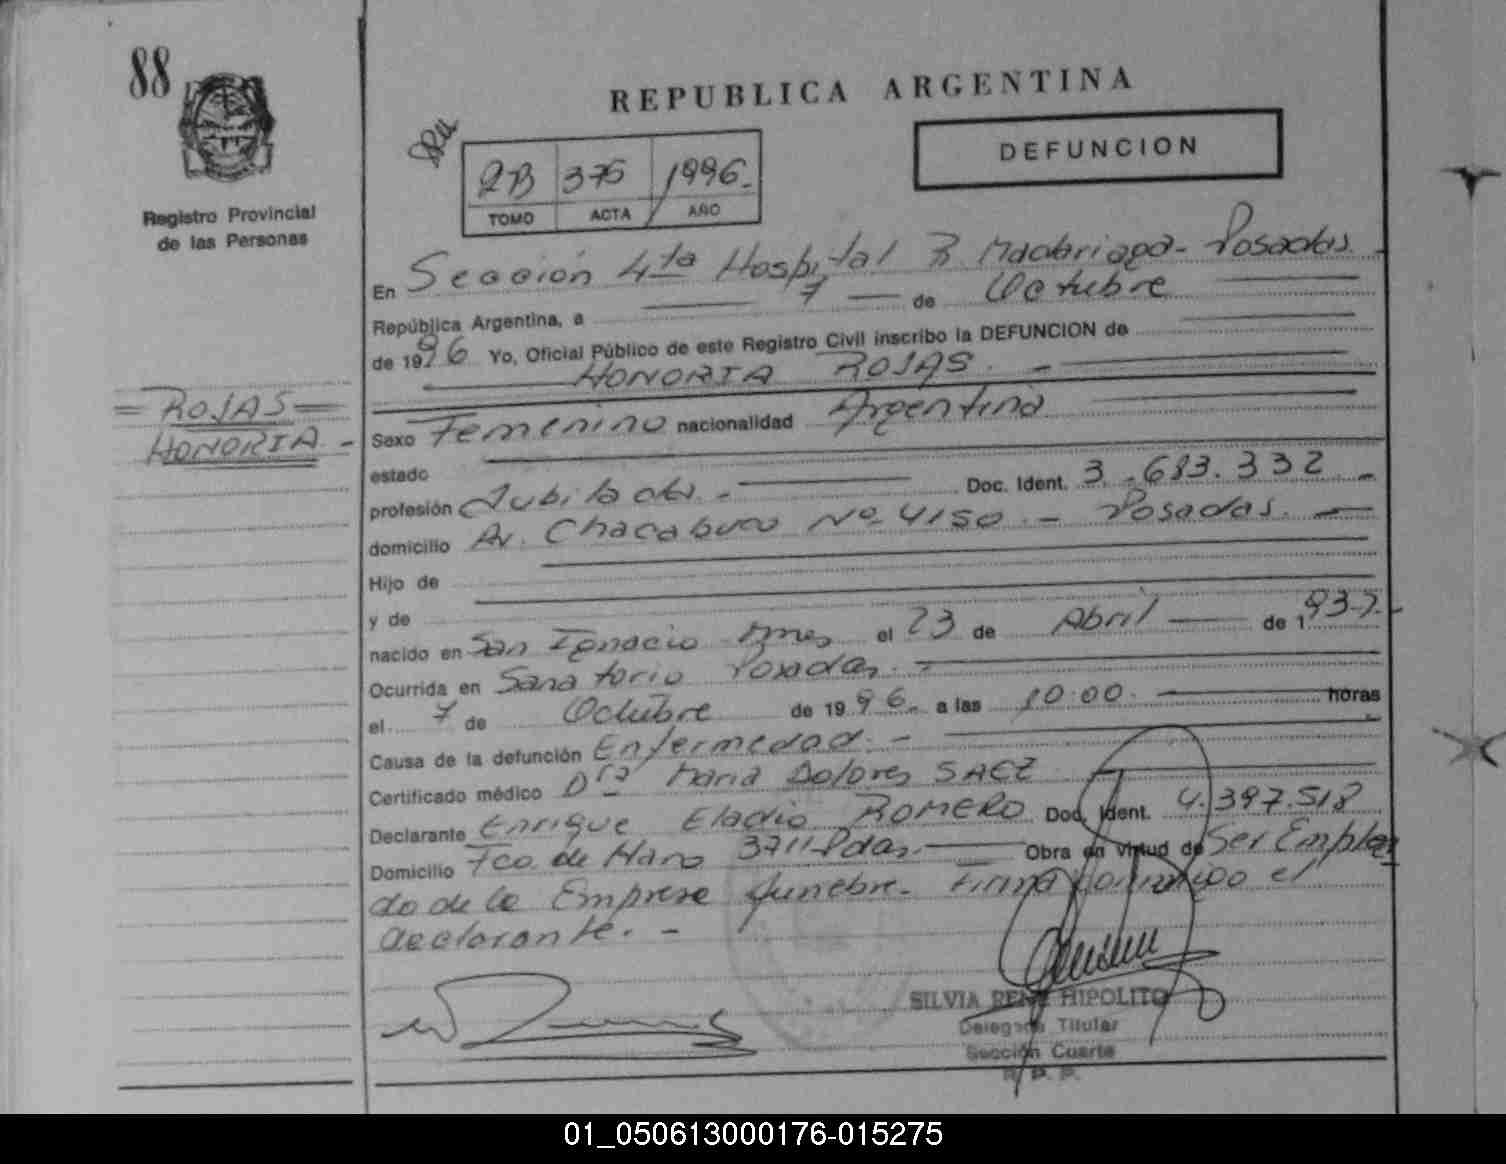 88
REPUBLICA ARGENTINA
DEFUNCION
2B 375 1996.
TOMO ACTA AÑO
Registro Provincial
de las Personas
En Sección 4ta Hospital R. Madariaga - Posadas
República Argentina, a 7 de Octubre
de 1996 Yo, Oficial Público de este Registro Civil inscribo la DEFUNCION de
HONORIA ROJAS. -
= ROJAS =
HONORIA -
Sexo Femenino nacionalidad Argentina
estado
profesión Jubilada. - Doc. Ident. 3.683.332 -
domicilio Av. Chacabuco Nº 4150 - Posadas. -
Hijo de
y de
nacido en San Ignacio Mnes el 23 de Abril de 1.937.-
Ocurrida en Sanatorio Posadas. -
el 7 de Octubre de 1996. a las 10:00. horas
Causa de la defunción Enfermedad. -
Certificado médico Dra Maria Dolores SAEZ
Declarante Enrique Eladio ROMERO Doc. Ident. 4.397.518
Domicilio Fco. de Haro 3711-Pdas. - Obra en virtud de Ser Emplea
do de la Empresa funebre. - Firma conmigo el
declarante. -
SILVIA RENE HIPOLITO
Delegada Titular
Sección Cuarta
R. P. P.
01_050613000176-015275